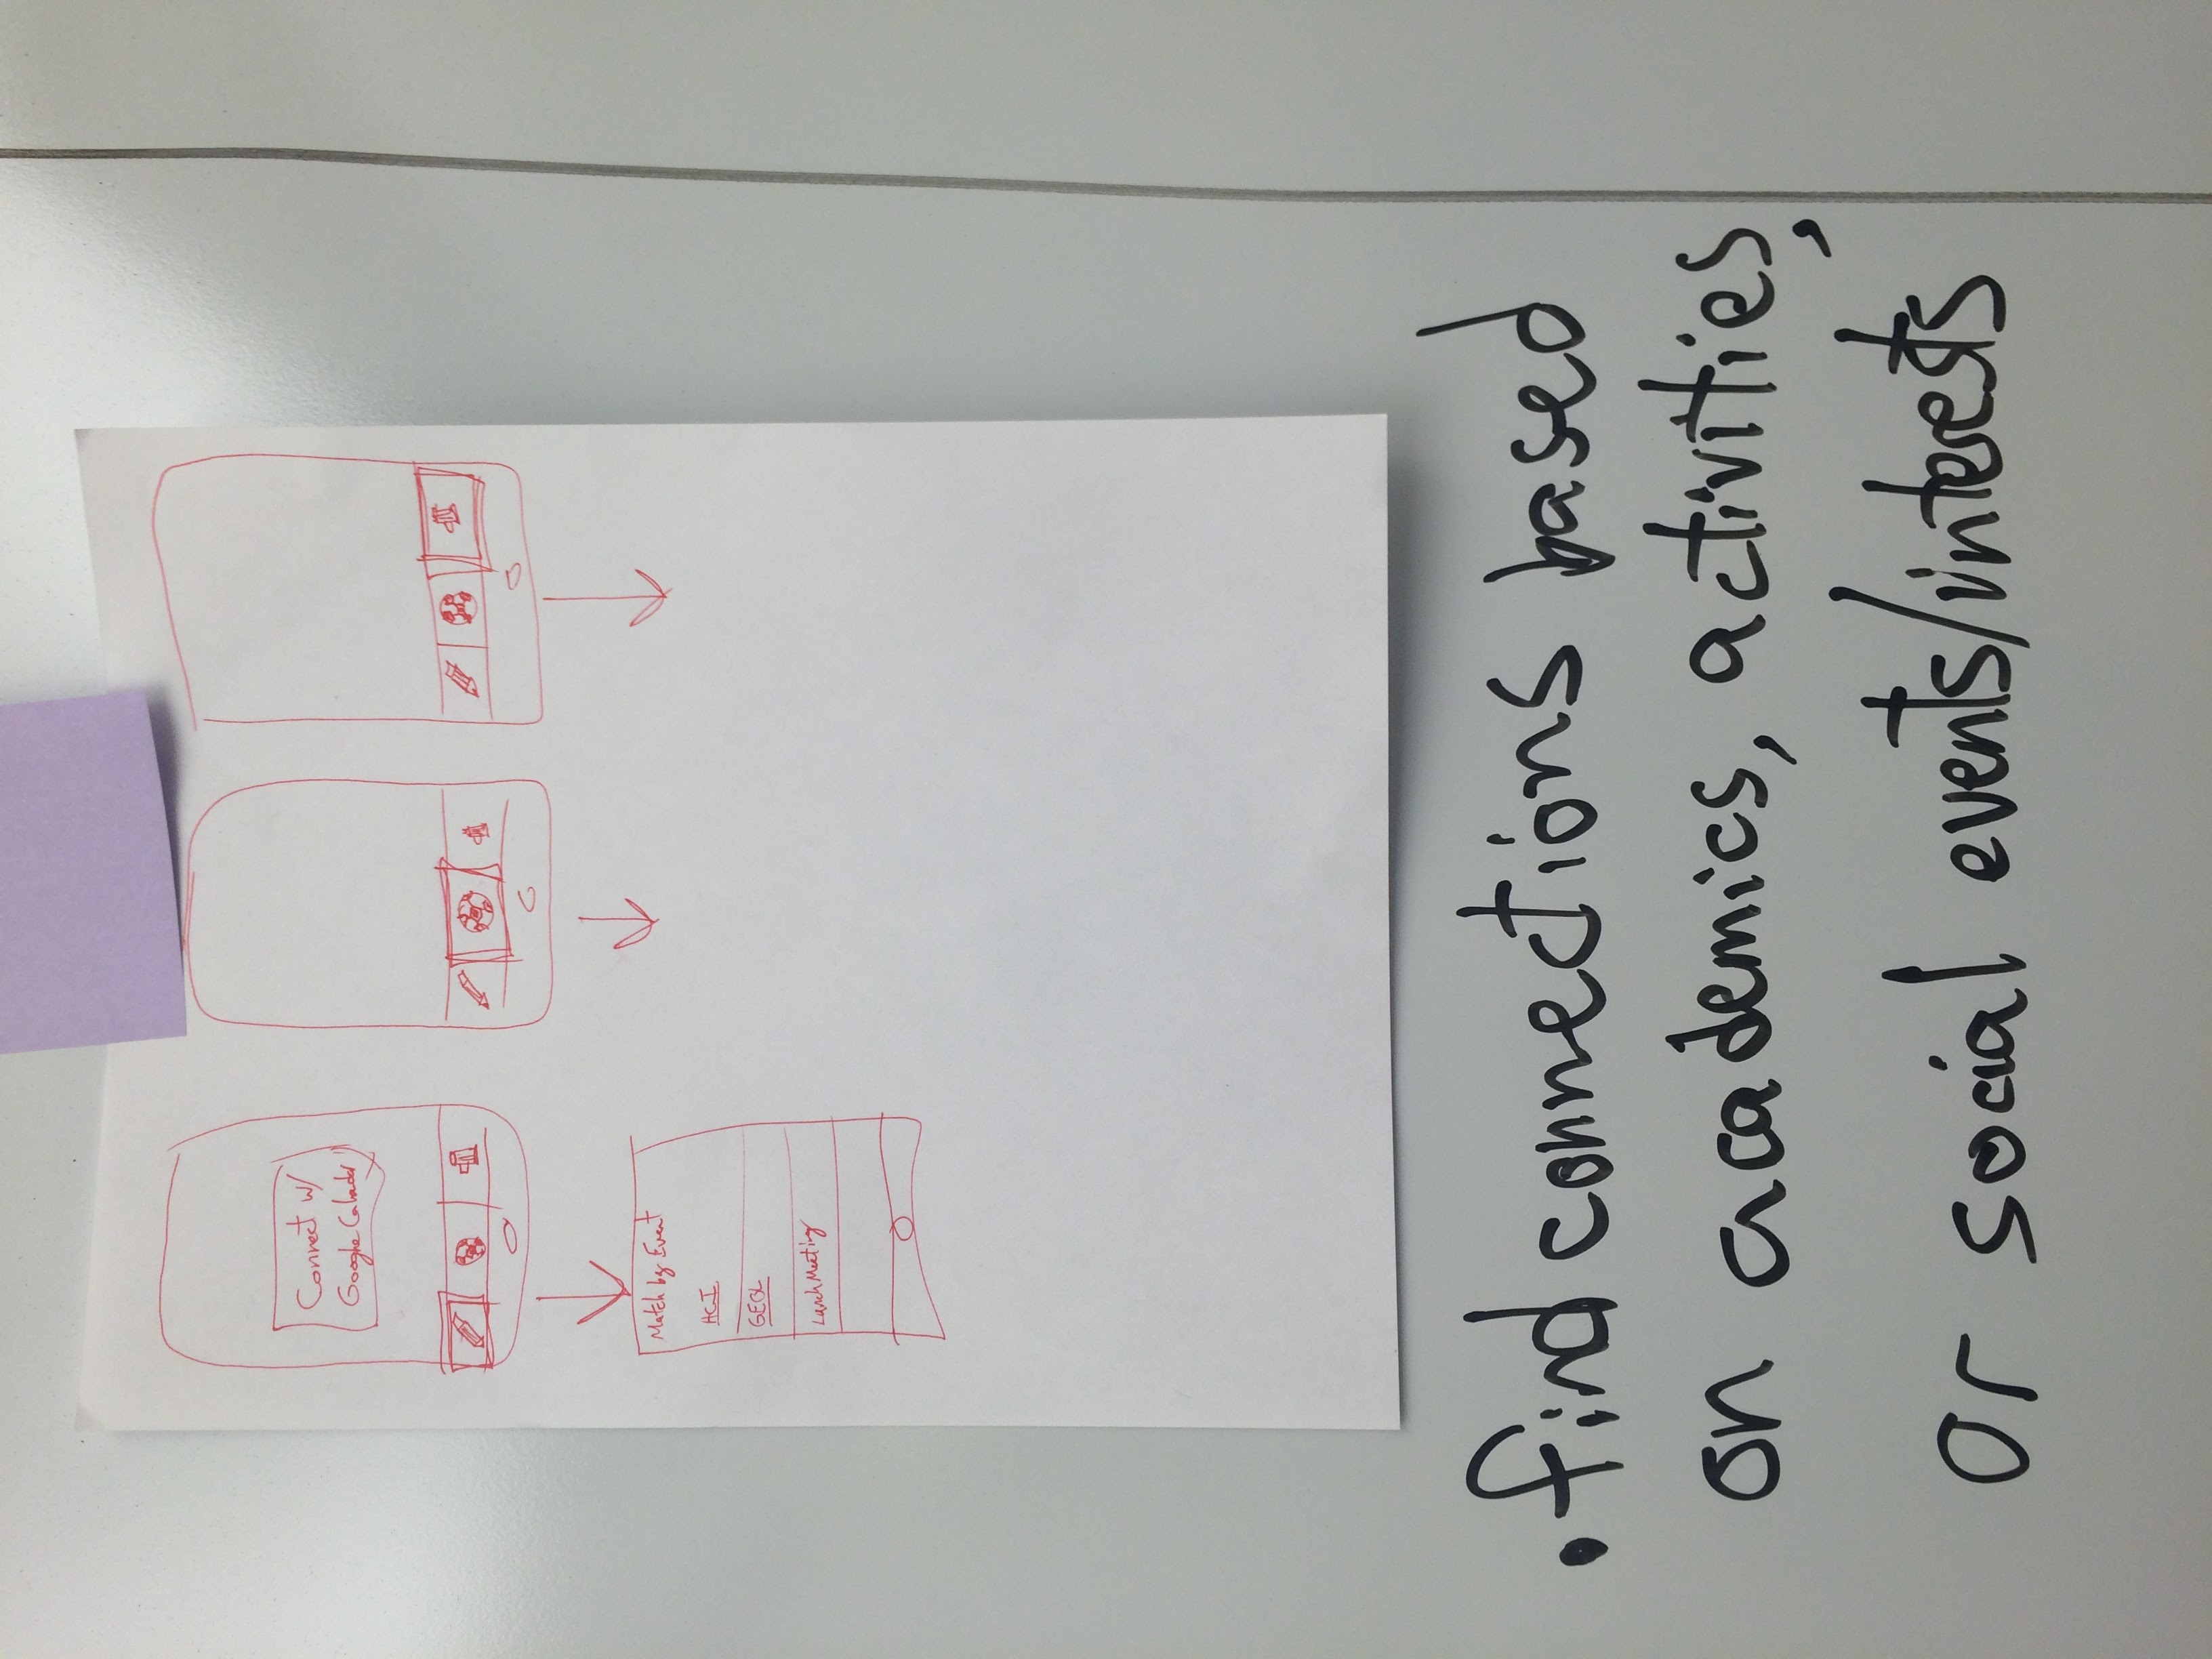 Connect w/
Google Calendar
Match by Event
HCI
GEOL
Lunch Meeting
• find connections based
on academics, activities,
or social events/interests